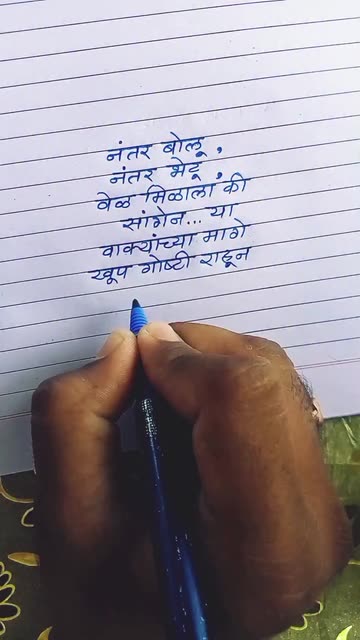 नंतर बोलू ,
नंतर भेटू ,
वेळ मिळाला की
सांगेन... या
वाक्यांच्या मागे
खूप गोष्टी राहून